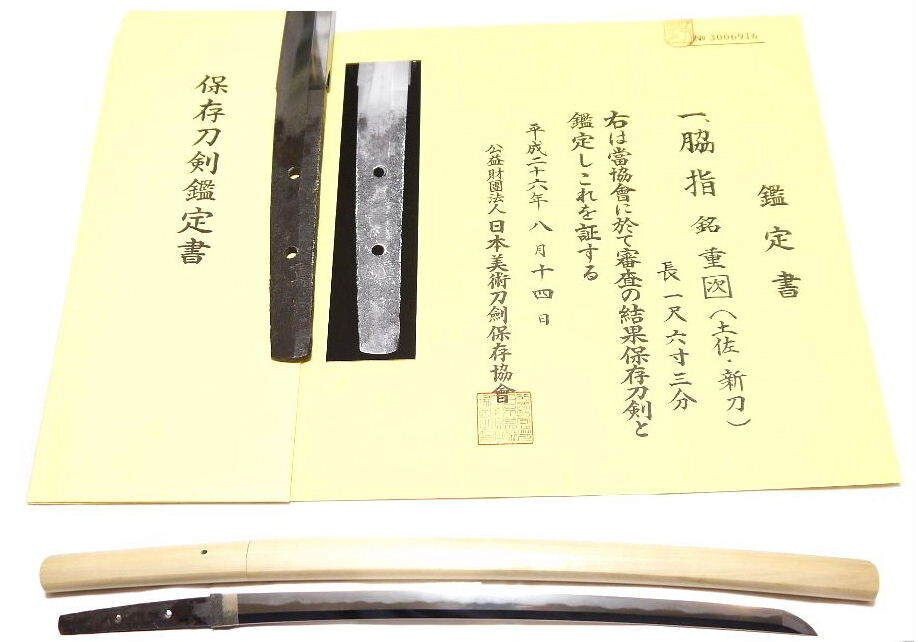 № 3006916
鑑定書
一、脇指 銘 重次(土佐・新刀)
長一尺六寸三分
右は當協會に於て審査の結果保存刀剣と
鑑定しこれを証する
平成二十六年八月十四日
公益財團法人日本美術刀劍保存協會
保存刀剣鑑定書